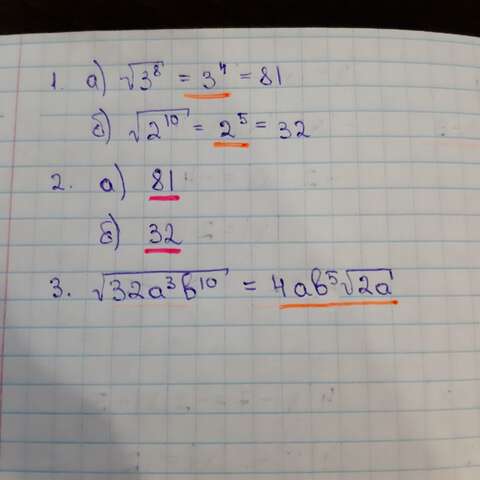 1. а) √3⁸ = 3⁴ = 81
б) √2¹⁰ = 2⁵ = 32
2. а) 81
б) 32
3. √32a³b¹⁰ = 4ab⁵√2a